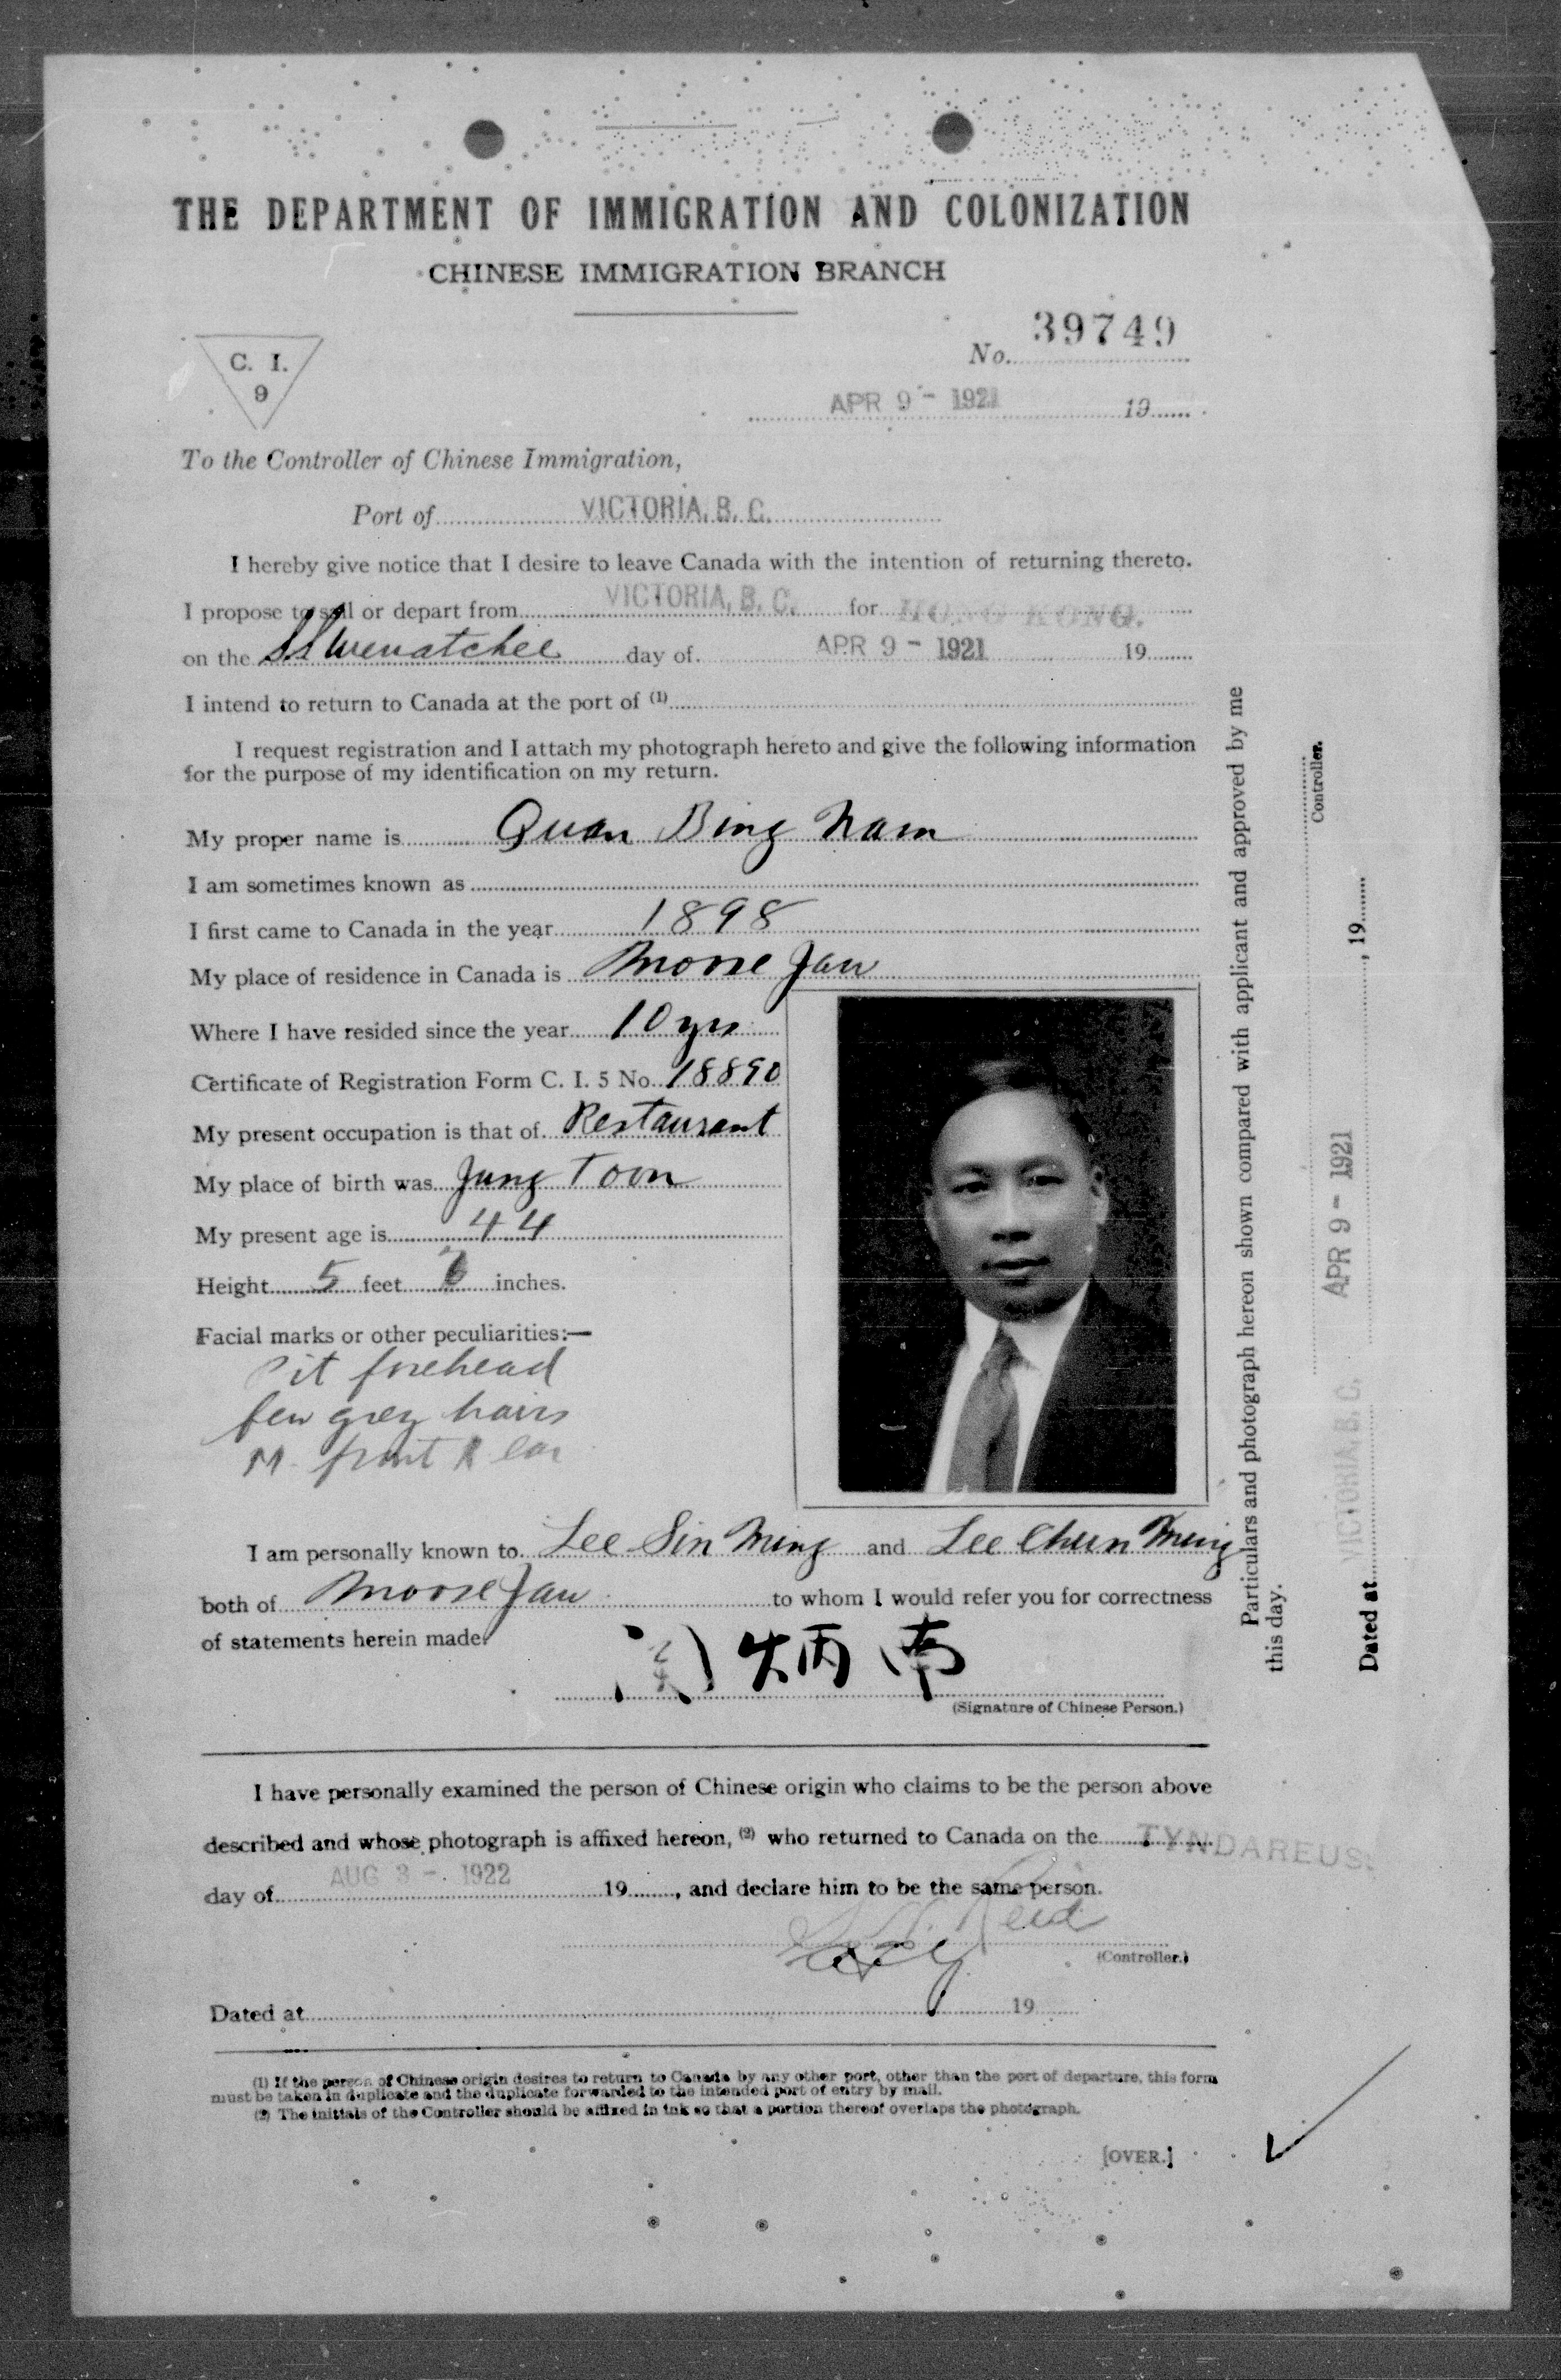 THE DEPARTMENT OF IMMIGRATION AND COLONIZATION
CHINESE IMMIGRATION BRANCH
C. I.
9
No. 39749
APR 9 - 1921 19
To the Controller of Chinese Immigration,
Port of VICTORIA, B. C.
I hereby give notice that I desire to leave Canada with the intention of returning thereto.
I propose to sail or depart from VICTORIA, B. C. for HONG KONG.
on the SS Wenatchee day of APR 9 - 1921 19
I intend to return to Canada at the port of (1)
I request registration and I attach my photograph hereto and give the following information
for the purpose of my identification on my return.
My proper name is Quan Bing Nam
I am sometimes known as
I first came to Canada in the year 1898
My place of residence in Canada is Moose Jaw
Where I have resided since the year 10 yrs
Certificate of Registration Form C. I. 5 No. 18890
My present occupation is that of Restaurant
My place of birth was Jung Toon
My present age is 44
Height 5 feet 6 inches.
Facial marks or other peculiarities:—
Pit forehead
few grey hairs
M. front R ear
I am personally known to Lee Sin Ming and Lee Chun Ming
both of Moose Jaw to whom I would refer you for correctness
of statements herein made.
関炳南
(Signature of Chinese Person.)
I have personally examined the person of Chinese origin who claims to be the person above
described and whose photograph is affixed hereon, (2) who returned to Canada on the TYNDAREUS.
day of AUG 3 - 1922 19, and declare him to be the same person.
Reid
(Controller.)
Dated at 19
(1) If the person of Chinese origin desires to return to Canada by any other port, other than the port of departure, this form
must be taken in duplicate and the duplicate forwarded to the intended port of entry by mail.
(2) The initials of the Controller should be affixed in ink so that a portion thereof overlaps the photograph.
[OVER.]
Particulars and photograph hereon shown compared with applicant and approved by me
this day.
APR 9 - 1921
Controller.
Dated at VICTORIA, B. C. , 19